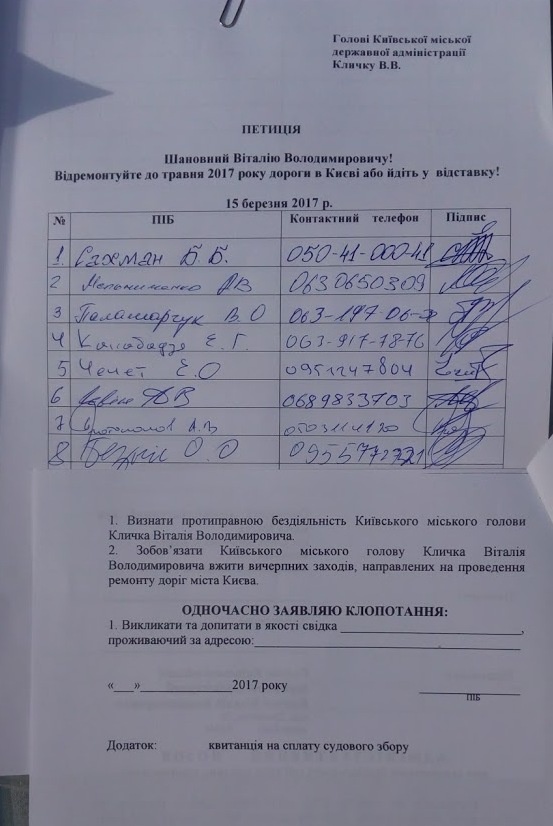 Голові Київської міської
державної адміністрації
Кличку В.В.
ПЕТИЦІЯ
Шановний Віталію Володимировичу!
Відремонтуйте до травня 2017 року дороги в Києві або йдіть у відставку!
15 березня 2017 р.
№ ПІБ Контактний телефон Підпис
1. Сахман Б. Б. 050-41-000-41
2 АВ 0630650309
3 Паламарчук В. О 063-197-06-
4 Е. Г. 063-917-78-76
5 Е.О 0951247804
6 ДВ 0689833703
7 А.В
8 О.О
1. Визнати протиправною бездіяльність Київського міського голови
Кличка Віталія Володимировича.
2. Зобов'язати Київського міського голову Кличка Віталія
Володимировича вжити вичерпних заходів, направлених на проведення
ремонту доріг міста Києва.
ОДНОЧАСНО ЗАЯВЛЯЮ КЛОПОТАННЯ:
1. Викликати та допитати в якості свідка ____________________________,
проживаючий за адресою:__________________________________________
«___»______________2017 року
ПІБ
Додаток: квитанція на сплату судового збору